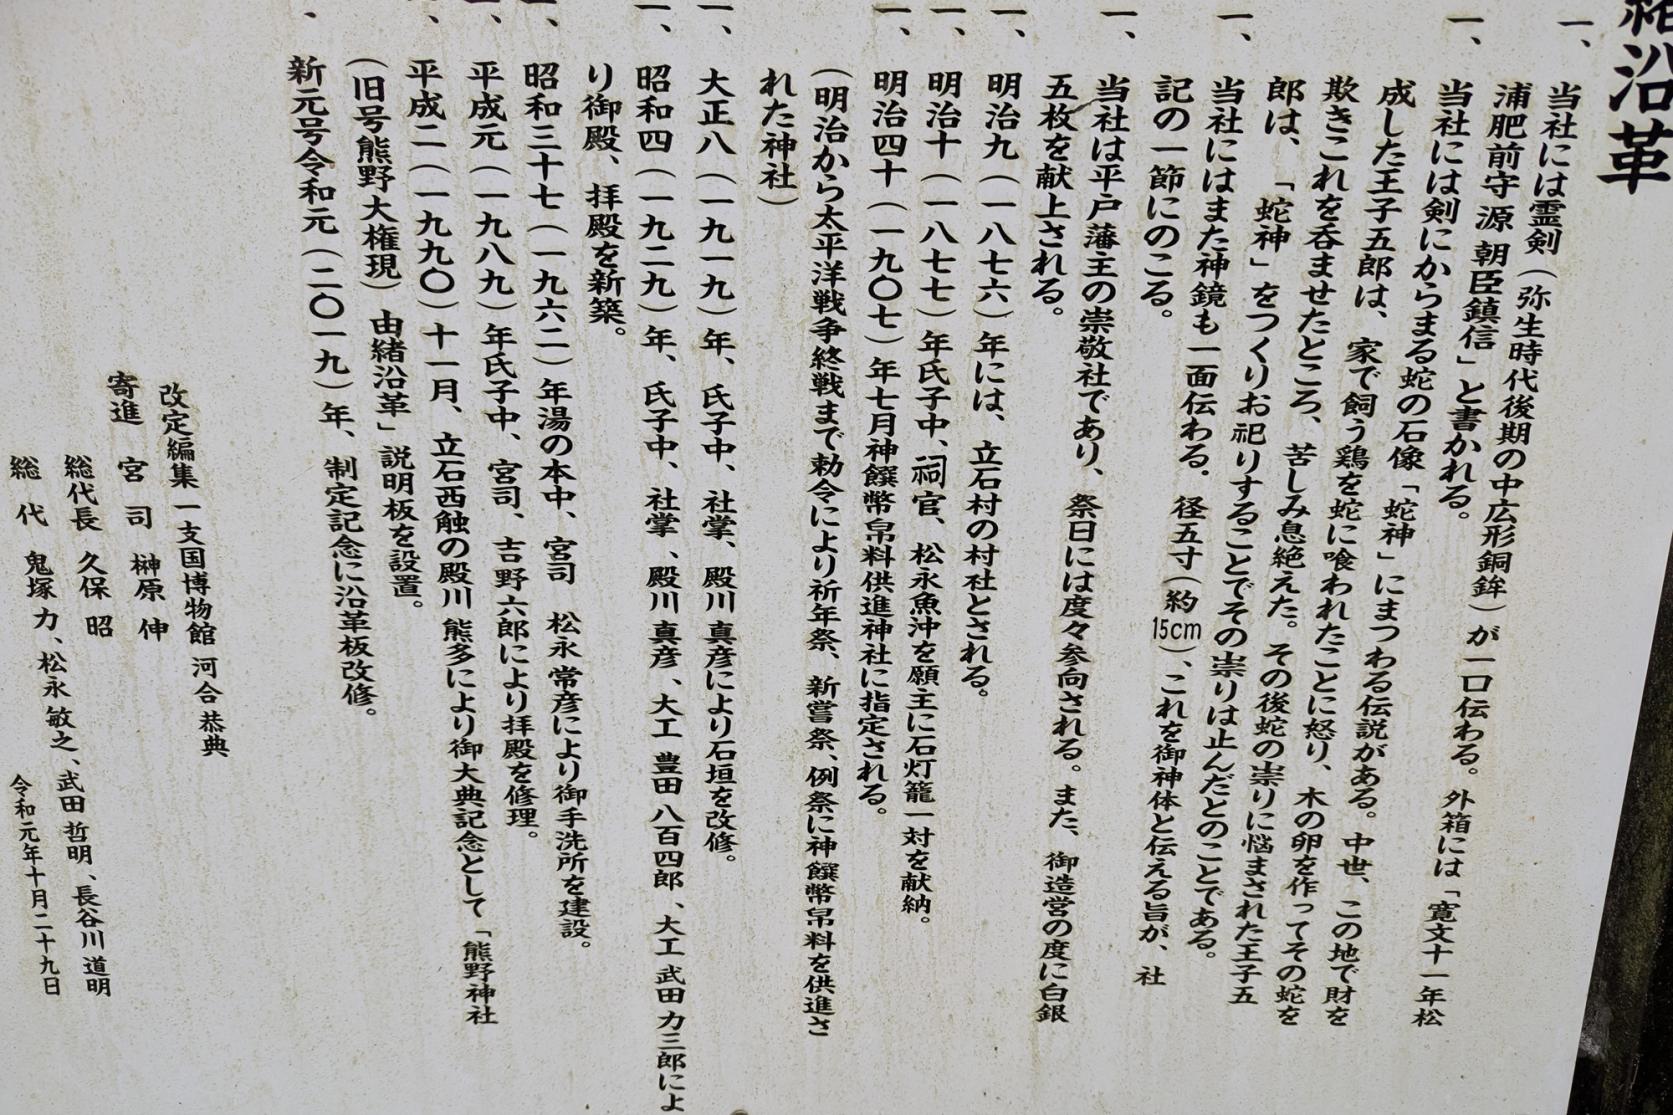 緒沿革
一、当社には霊剣（弥生時代後期の中広形銅鉾）が一口伝わる。外箱には「寛文十一年松
浦肥前守源朝臣鎮信」と書かれる。
一、当社には剣にからまる蛇の石像「蛇神」にまつわる伝説がある。中世、この地で財を
成した王子五郎は、家で飼う鶏を蛇に喰われたことに怒り、木の卵を作ってその蛇を
欺きこれを呑ませたところ、苦しみ息絶えた。その後蛇の祟りに悩まされた王子五
郎は、「蛇神」をつくりお祀りすることでその祟りは止んだとのことである。
一、当社にはまた神鏡も一面伝わる．径五寸（約15cm）、これを御神体と伝える旨が、社
記の一節にのこる。
一、当社は平戸藩主の崇敬社であり、祭日には度々参向される。また、御造営の度に白銀
五枚を献上される。
一、明治九（一八七六）年には、立石村の村社とされる。
一、明治十（一八七七）年氏子中、祠官、松永魚沖を願主に石灯籠一対を献納。
一、明治四十（一九〇七）年七月神饌幣帛料供進神社に指定される。
（明治から太平洋戦争終戦まで勅令により祈年祭、新嘗祭、例祭に神饌幣帛料を供進さ
れた神社）
一、大正八（一九一九）年、氏子中、社掌、殿川真彦により石垣を改修。
一、昭和四（一九二九）年、氏子中、社掌、殿川真彦、大工 豊田八百四郎、大工 武田力三郎によ
り御殿、拝殿を新築。
一、昭和三十七（一九六二）年湯の本中、宮司 松永常彦により御手洗所を建設。
一、平成元（一九八九）年氏子中、宮司、吉野六郎により拝殿を修理。
一、平成二（一九九〇）十一月、立石西触の殿川熊多により御大典記念として「熊野神社
（旧号熊野大権現）由緒沿革」説明板を設置。
、新元号令和元（二〇一九）年、制定記念に沿革板改修。
改定編集 一支国博物館 河合恭典
寄進 宮司 榊原 伸
総代長 久保 昭
総代 鬼塚 力、松永敏之、武田哲明、長谷川道明
令和元年十月二十九日